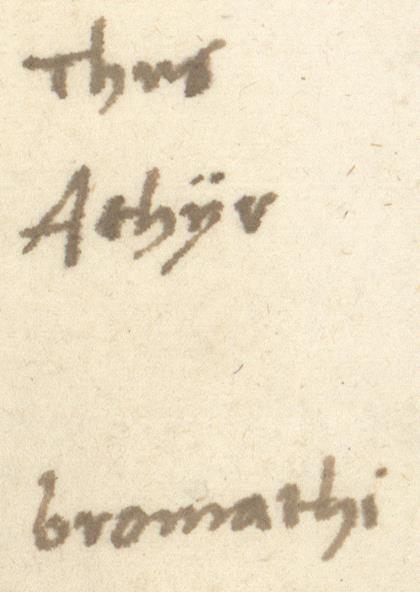 Thus
Athÿr
bromathi